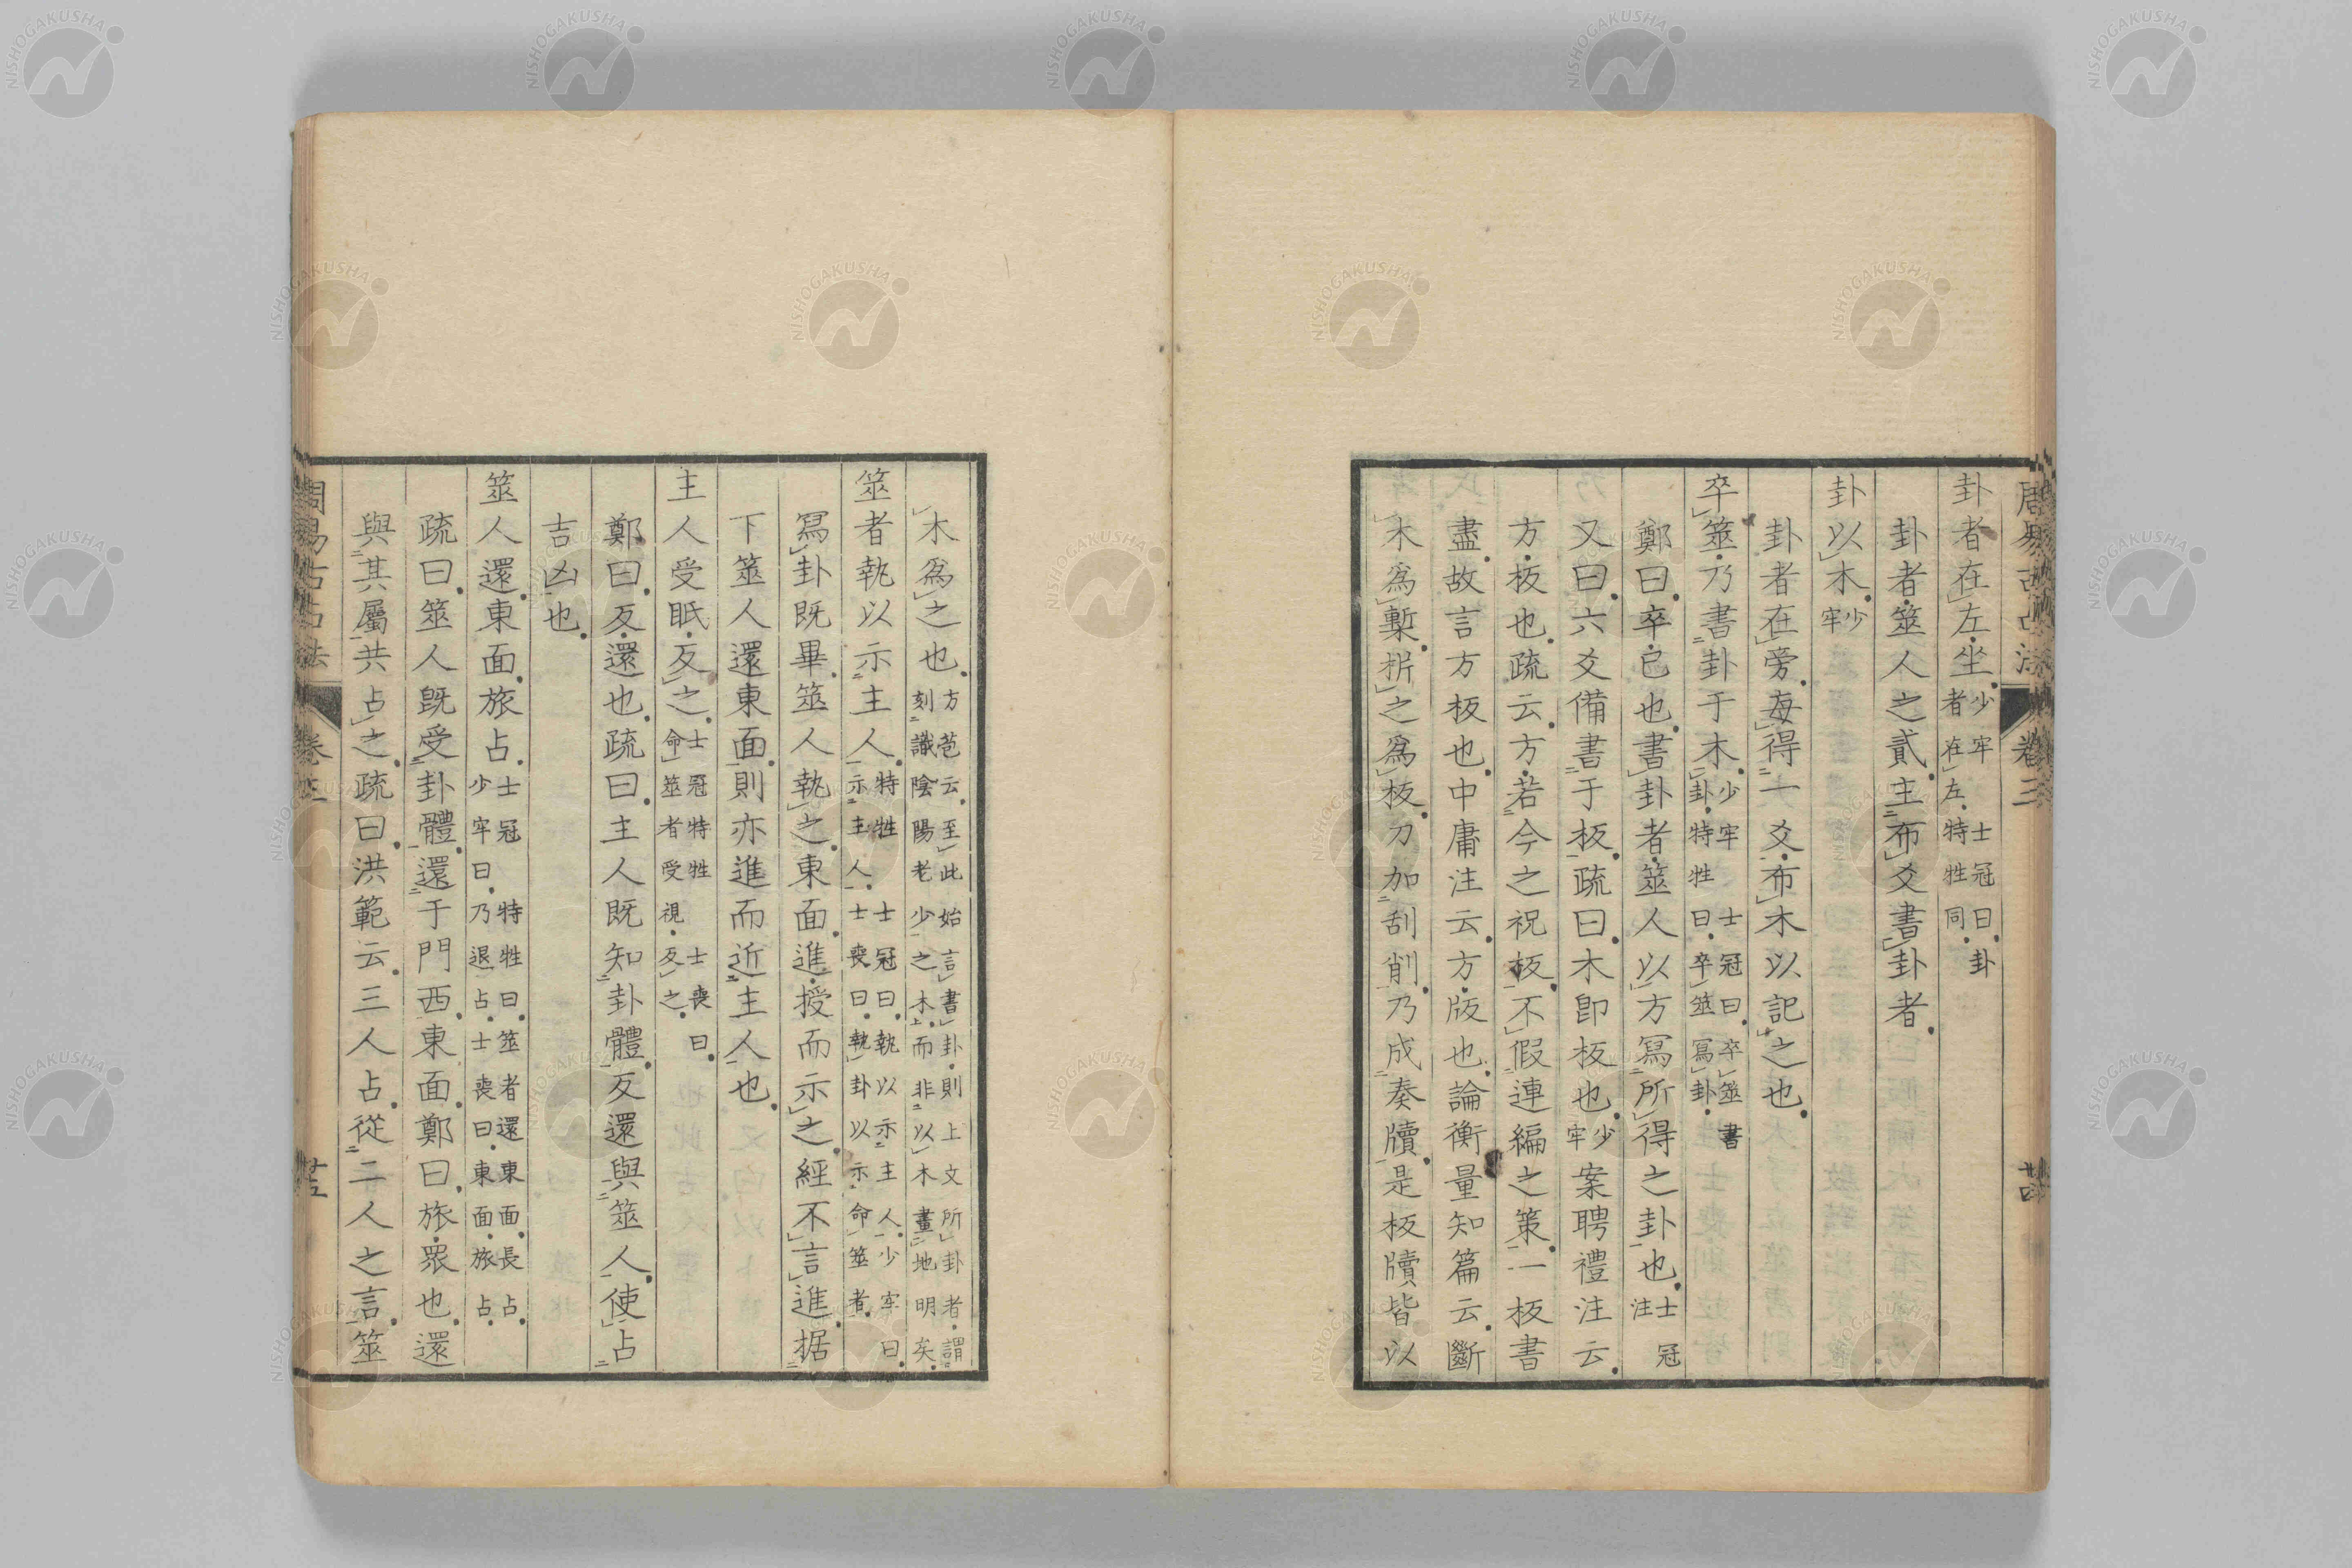 周易古占法 卷三 廿四
卦者在左坐少牢士冠曰卦者在左特牲同
卦者筮人之貳主布爻書卦者
卦以木少牢
卦者在旁每得一爻布木以記之也
卒筮乃書卦于木少牢士冠曰卒筮書卦特牲曰卒筮寫卦
鄭曰卒已也書卦者筮人以方寫所得之卦也士冠注
又曰六爻備書于板疏曰木卽板也少牢案聘禮注云
方板也疏云方若今之祝板不假連編之策一板書
盡故言方板也中庸注云方版也論衡量知篇云斷
木爲槧析之爲板刀加刮削乃成奏牘是板牘皆以
木爲之也方苞云至此始言書卦則上文所卦者謂刻識陰陽老少之木而非以木畫地明矣
筮者執以示主人特牲士冠曰執以示主人少牢曰示主人士喪曰執卦以示命筮者
寫卦既畢筮人執之東面進授而示之經不言進据
下筮人還東面則亦進而近主人也
主人受眡反之士冠特牲士喪曰命筮者受視反之
鄭曰反還也疏曰主人既知卦體反還與筮人使占
吉凶也
筮人還東面旅占士冠特牲曰筮者還東面長占少牢曰乃退占士喪曰東面旅占
疏曰筮人既受卦體還于門西東面鄭曰旅眾也還
與其屬共占之疏曰洪範云三人占從二人之言筮
周易古占法 卷三 廿五